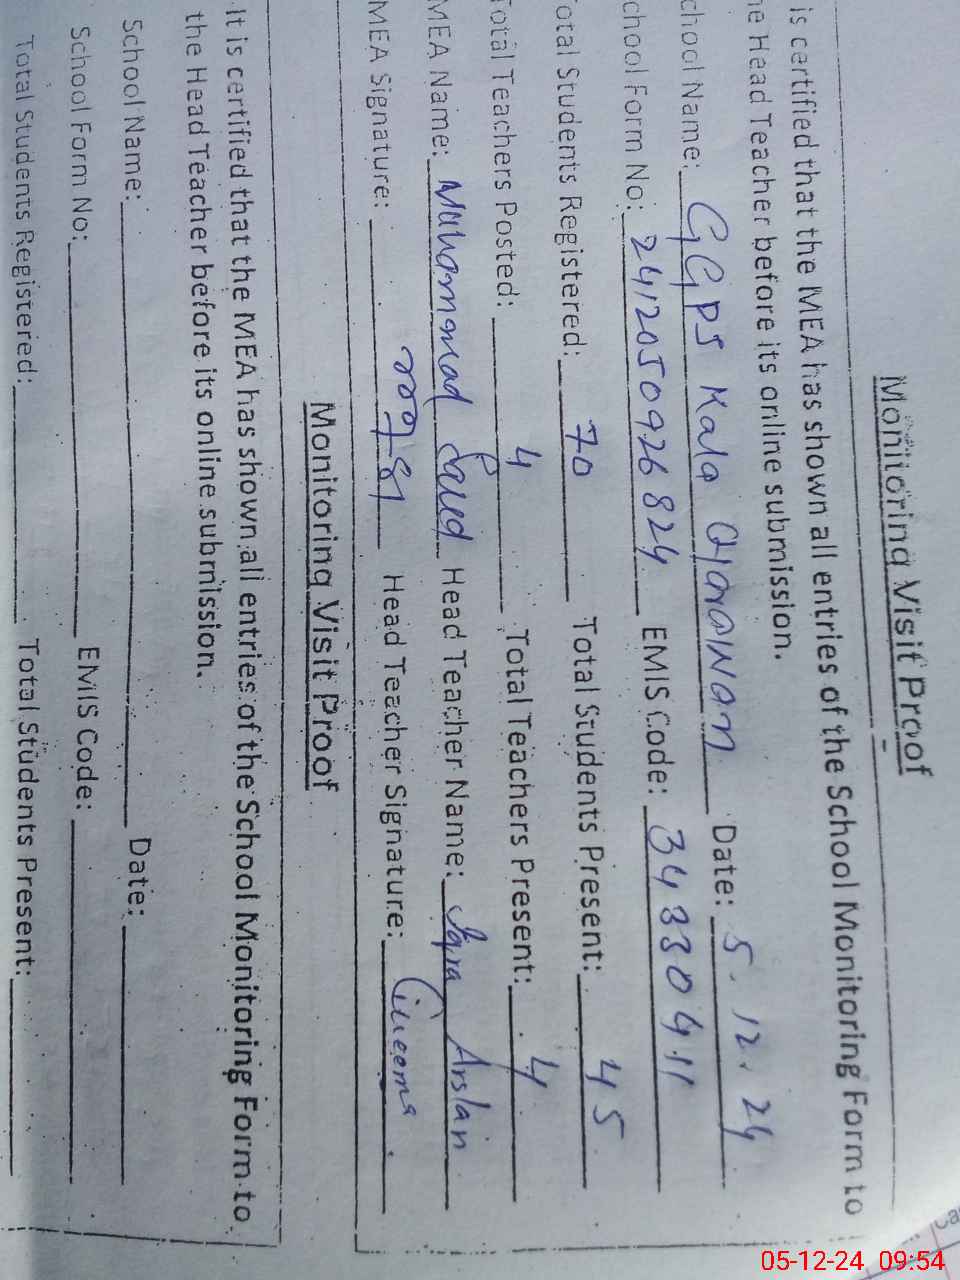 Monitoring Visit Proof
is certified that the MEA has shown all entries of the School Monitoring Form to
he Head Teacher before its online submission.
chool Name: GGPS Kala Date: 5.12.24
chool Form No: 2412050926824 EMIS Code: 34330411
otal Students Registered: 70 Total Students Present: 45
Total Teachers Posted: 4 Total Teachers Present: 4
MEA Name: Muhammad Saeed Head Teacher Name: Arslan
MEA Signature: Head Teacher Signature:
Monitoring Visit Proof
It is certified that the MEA has shown all entries of the School Monitoring Form to
the Head Teacher before its online submission.
School Name: Date:
School Form No: EMIS Code:
Total Students Registered: Total Students Present:
05-12-24 09:54